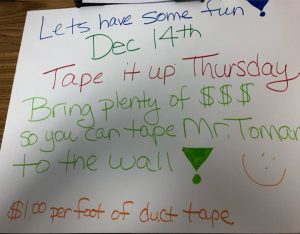 Lets have some fun!
Dec 14th
Tape it up Thursday
Bring plenty of $$$
so you can tape Mr. Toman
to the wall!
$1.00 per foot of duct tape